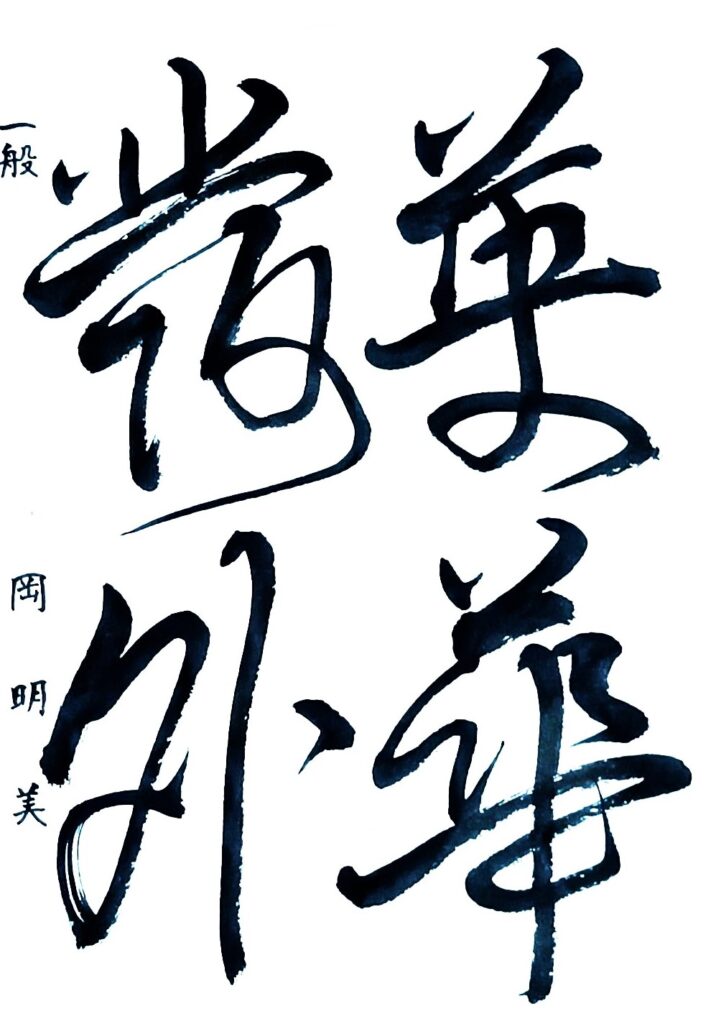 英華
發外
一般 岡明美